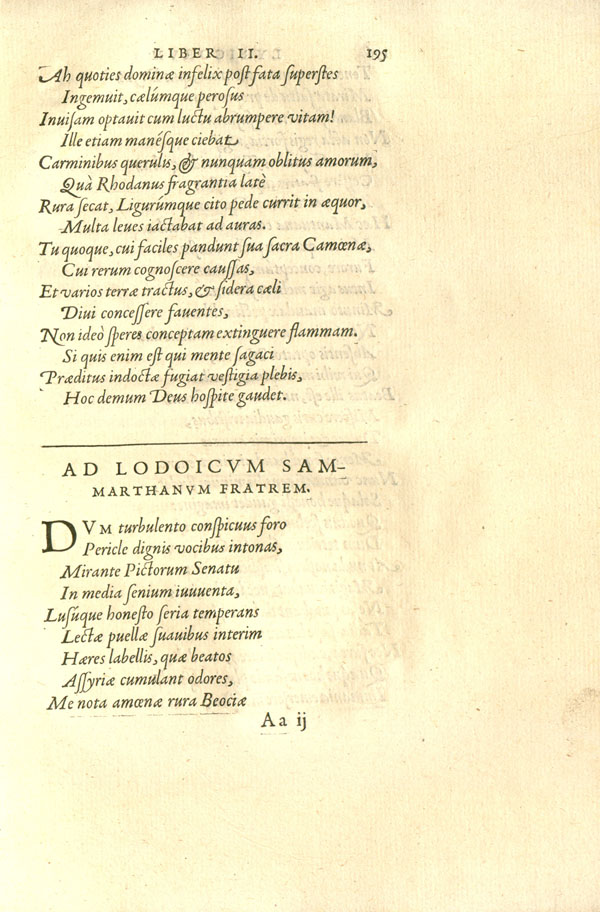 LIBER II. 195
Ah quoties dominæ infelix post fata superstes
Ingemuit, cælúmque perosus
Inuisam optauit cum luctu abrumpere vitam!
Ille etiam manésque ciebat
Carminibus querulis, & nunquam oblitus amorum,
Quà Rhodanus fragrantia latè
Rura secat, Ligurúmque cito pede currit in æquor,
Multa leues iactabat ad auras.
Tu quoque, cui faciles pandunt sua sacra Camœnæ,
Cui rerum cognoscere caussas,
Et varios terræ tractus, & sidera cæli
Diui concessere fauentes,
Non ideò speres conceptam extinguere flammam.
Si quis enim est qui mente sagaci
Præditus indoctæ fugiat vestigia plebis,
Hoc demum Deus hospite gaudet.
AD LODOICVM SAM-
MARTHANVM FRATREM.
DVM turbulento conspicuus foro
Pericle dignis vocibus intonas,
Mirante Pictorum Senatu
In media senium iuuuenta,
Lusúque honesto seria temperans
Lectæ puellæ suauibus interim
Hæres labellis, quæ beatos
Assyriæ cumulant odores,
Me nota amœnæ rura Beociæ
Aa ij